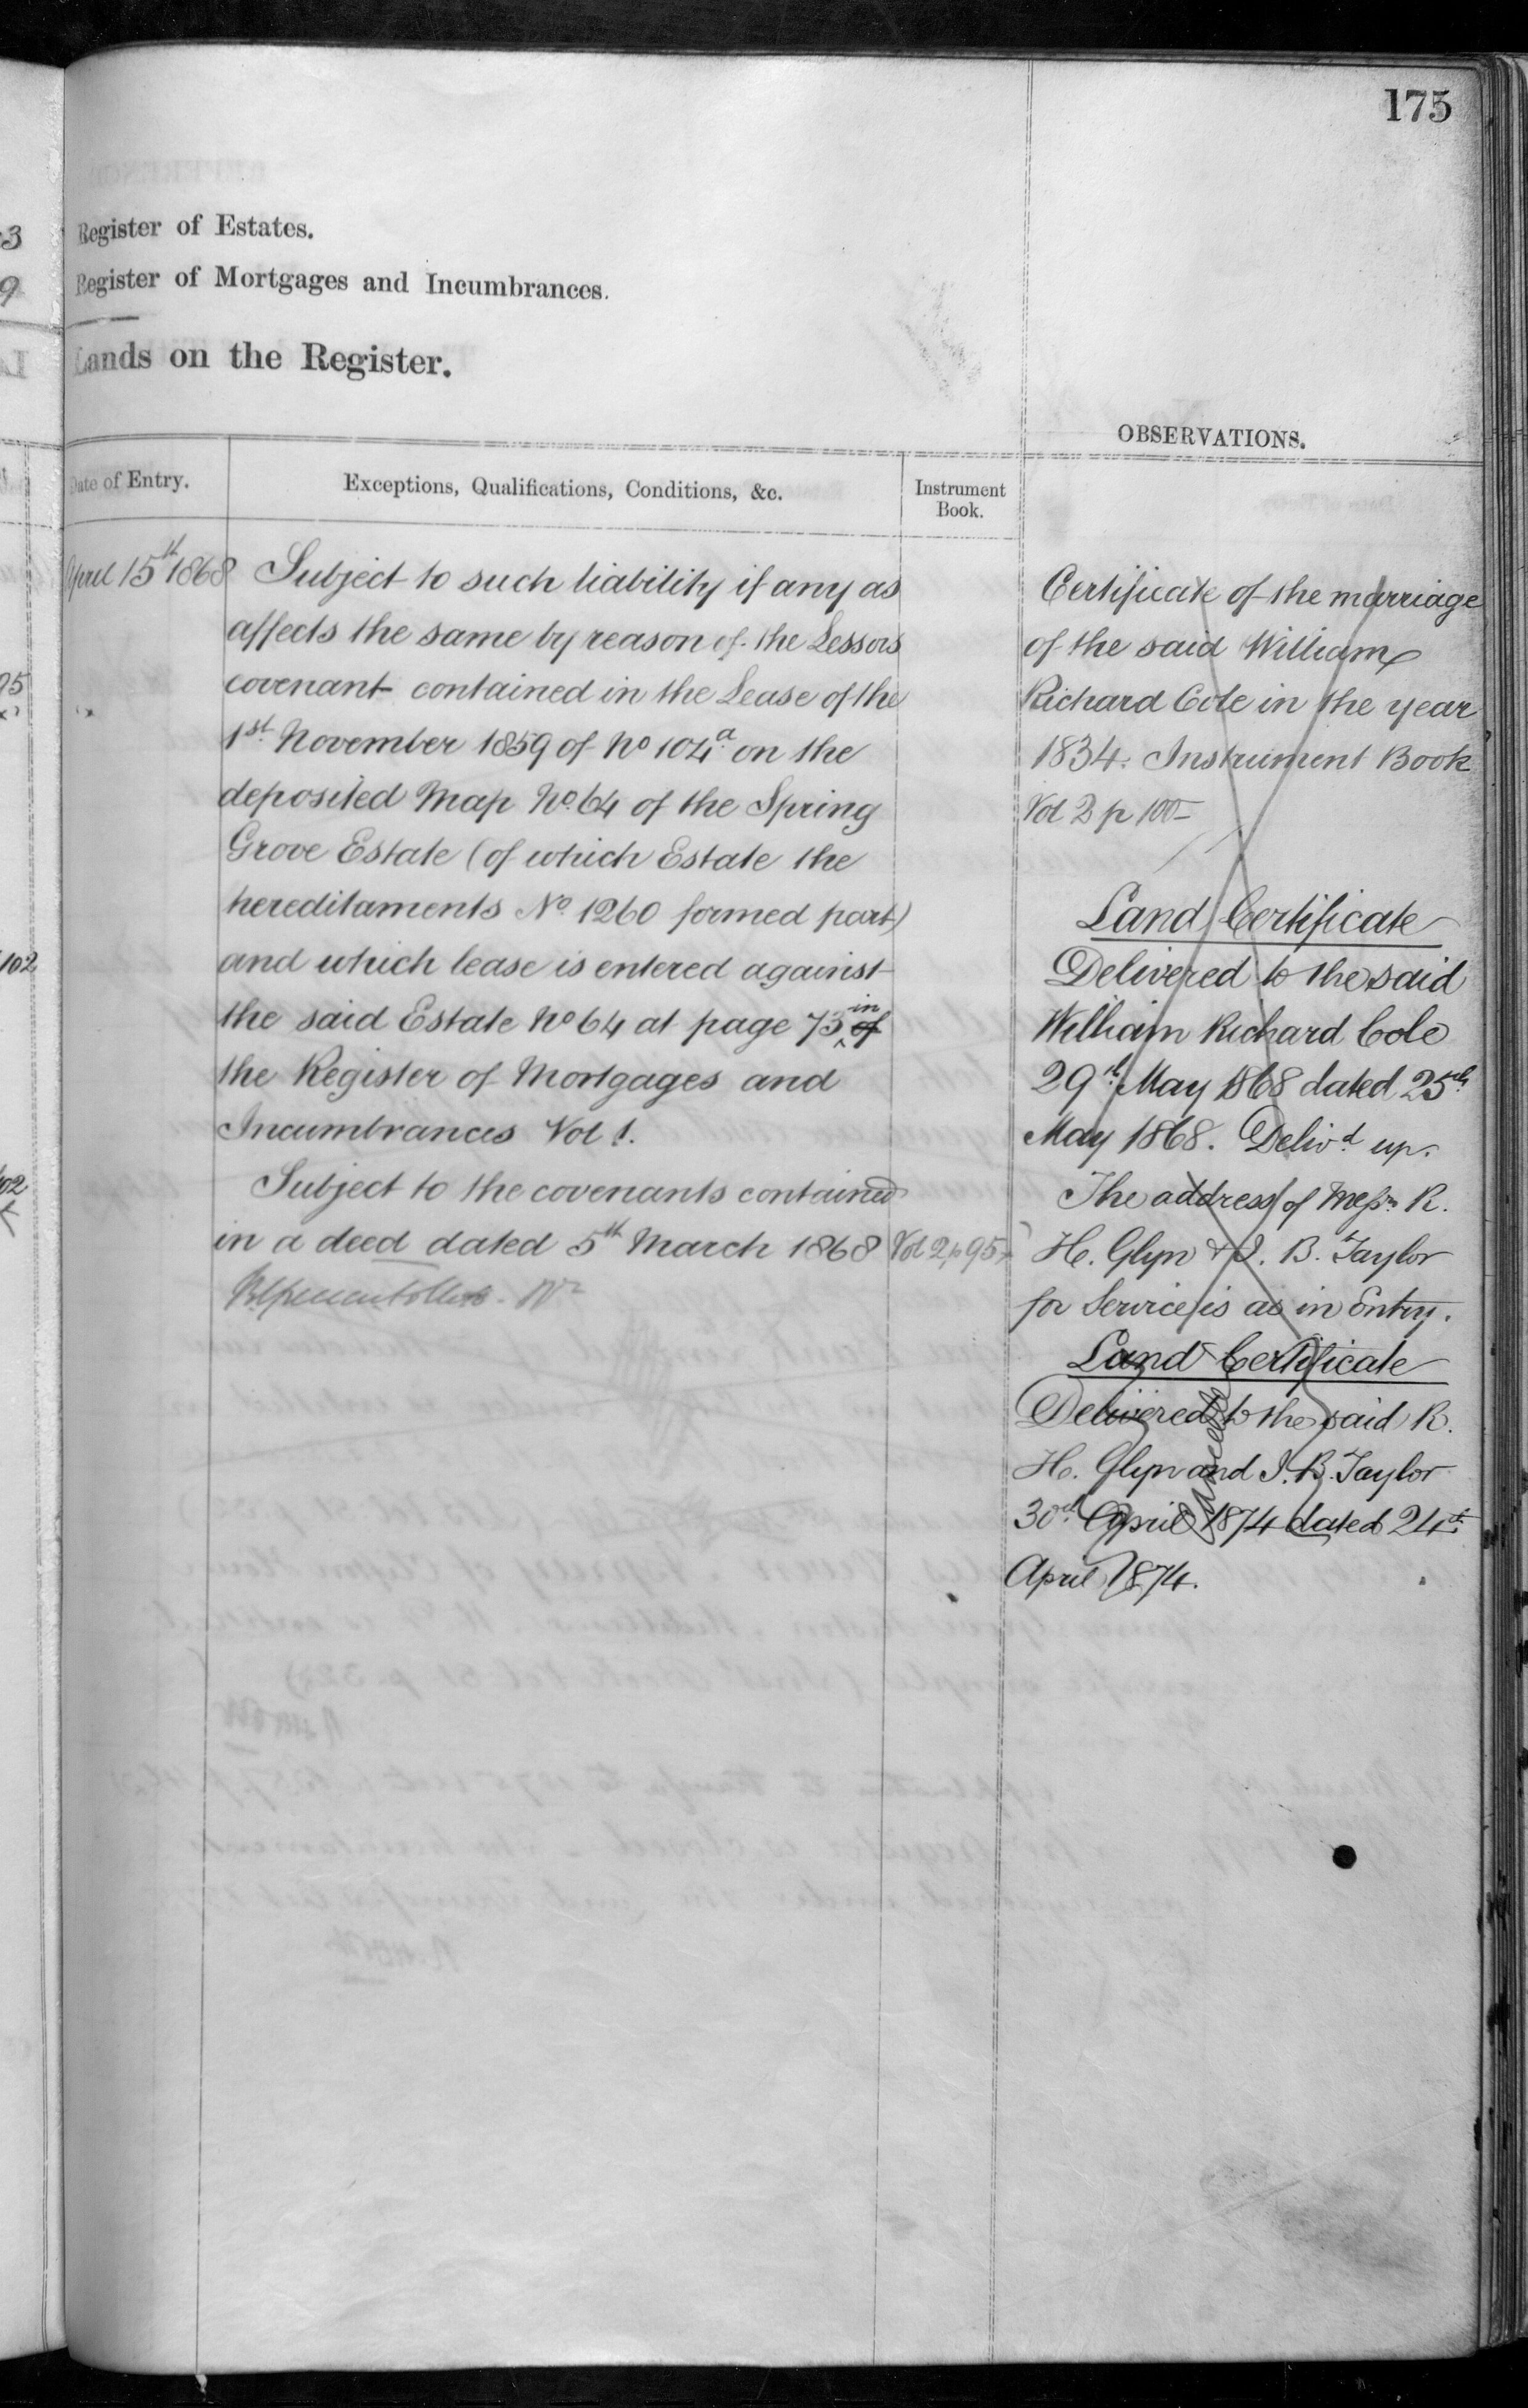 175
Register of Estates.
Register of Mortgages and Incumbrances.
Lands on the Register.
OBSERVATIONS.
Date of Entry.
Exceptions, Qualifications, Conditions, &c.
Instrument
Book.
April 15th 1868
Subject to such liability if any as
affects the same by reason of the Lessors
covenant contained in the Lease of the
1st November 1859 of No 104a on the
deposited Map No. 64 of the Spring
Grove Estate (of which Estate the
hereditaments No. 1260 formed part)
and which lease is entered against
the said Estate No 64 at page 73 in of
the Register of Mortgages and
Incumbrances Vol 1.
Subject to the covenants contained
in a deed dated 5th March 1868
Vol 2, p 95
Certificate of the marriage
of the said William
Richard Cole in the year
1834. Instrument Book
Vol 2 p 100
Land Certificate
Delivered to the said
William Richard Cole
29th May 1868 dated 25th
May 1868. Delivd up.
The address of Messrs R.
H. Glyn & I. B. Taylor
for Service is as in Entry.
Land Certificate
Delivered to the said R.
H. Glyn and I. B. Taylor
30th April 1874 dated 24th
April 1874.
Cancelled
3
9
95
102
102